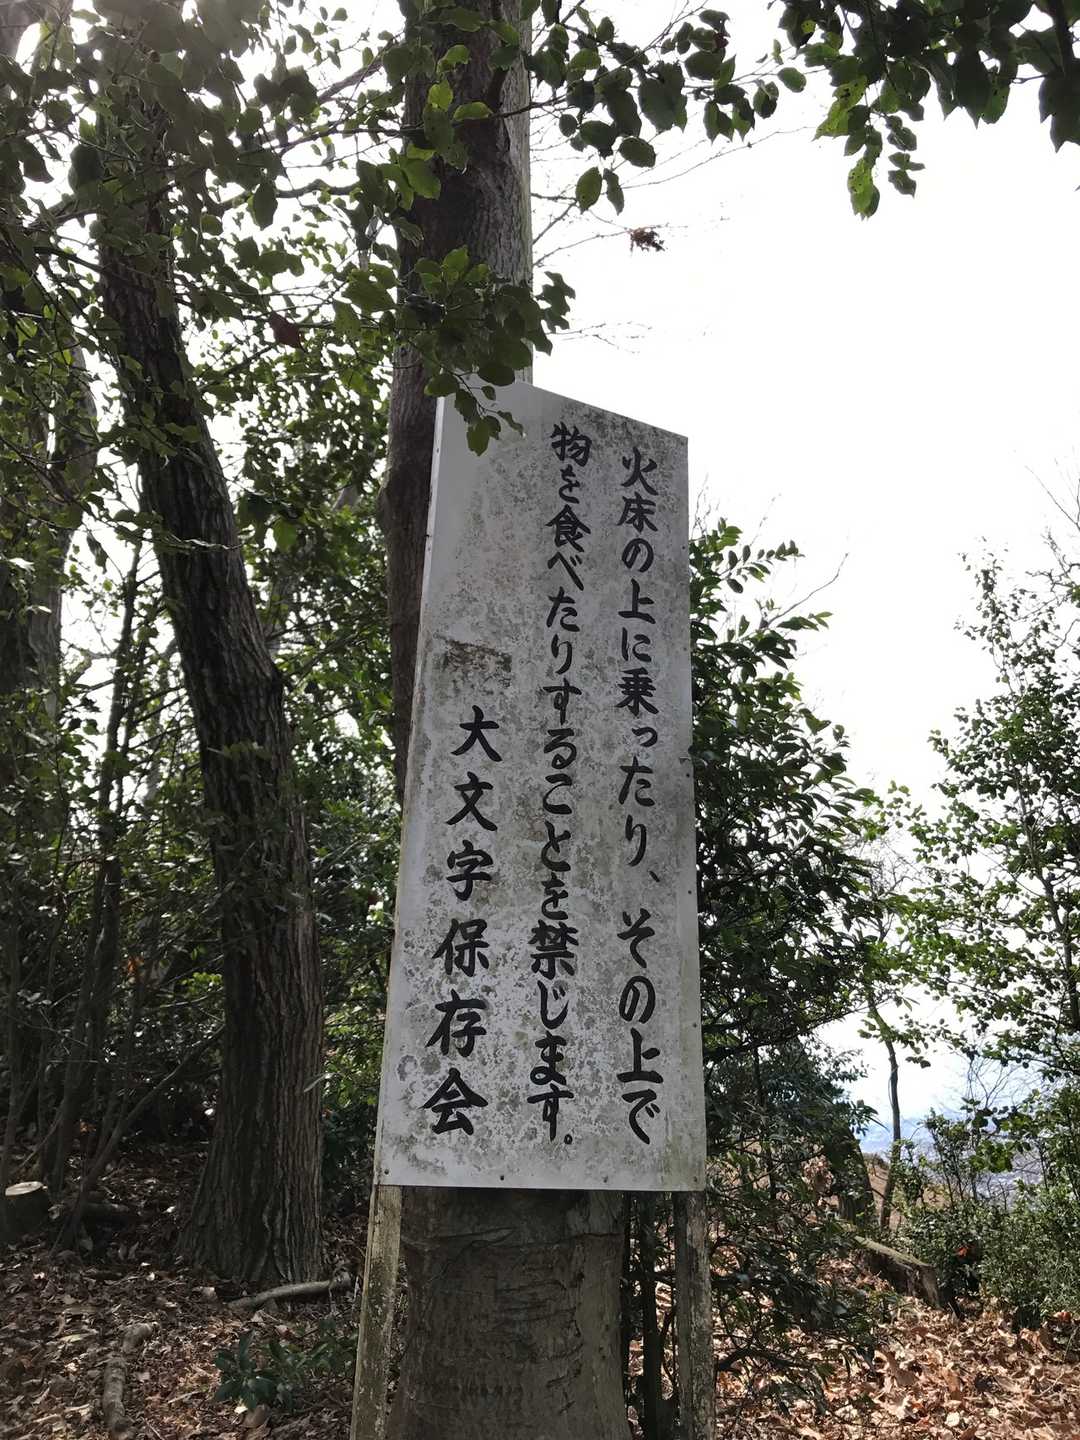 火床の上に乗ったり、その上で
物を食べたりすることを禁じます。
大文字保存会